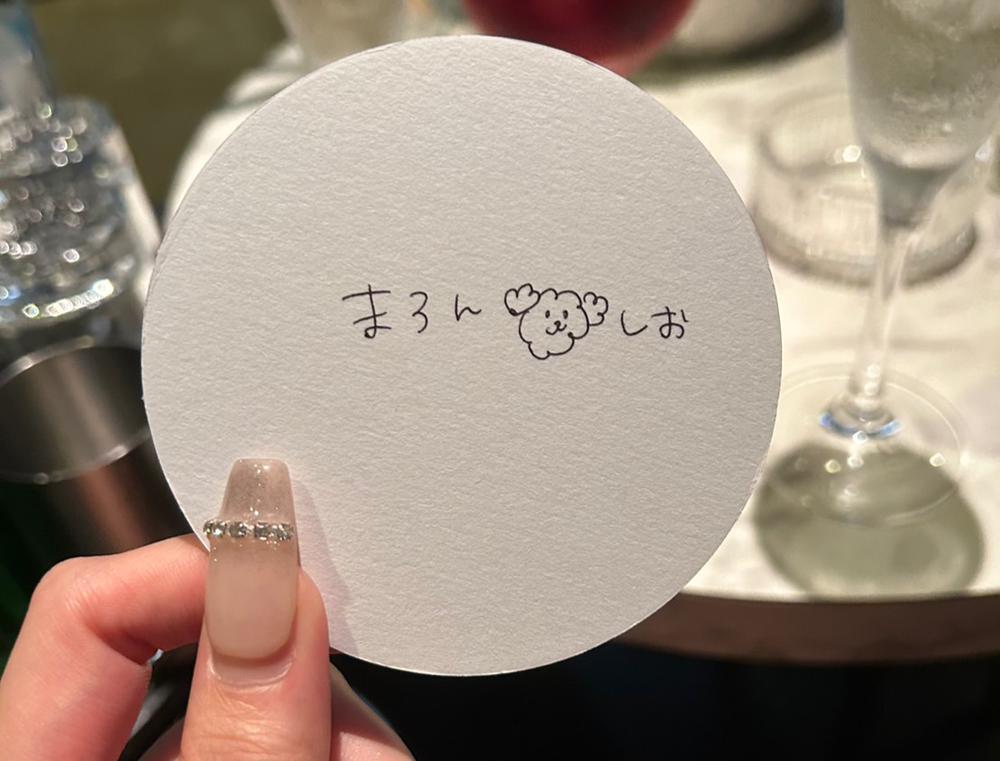 まろん しお